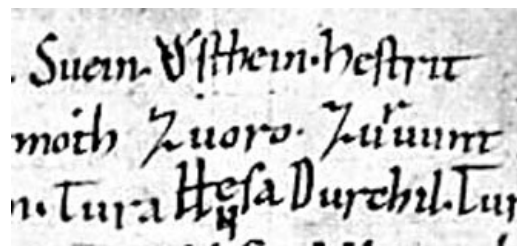 . Suein. Vſthein. heſtrit
moth Zuoro. Zuruunt
n. Tura Heſa Durchil. Tur